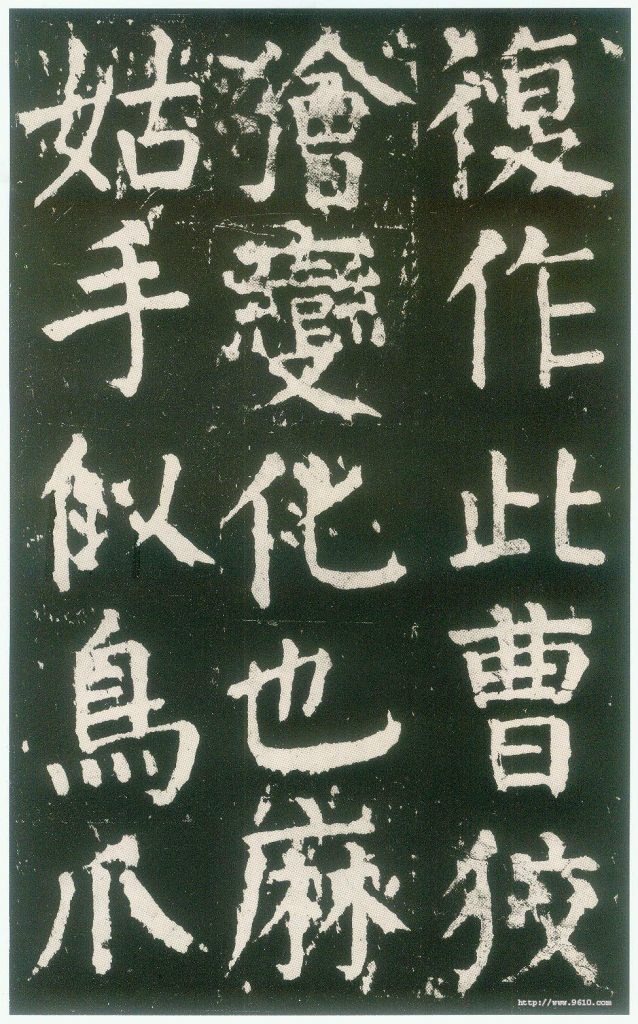 復作此曹狡
獪變化也麻
姑手似鳥爪
http://www.9610.com